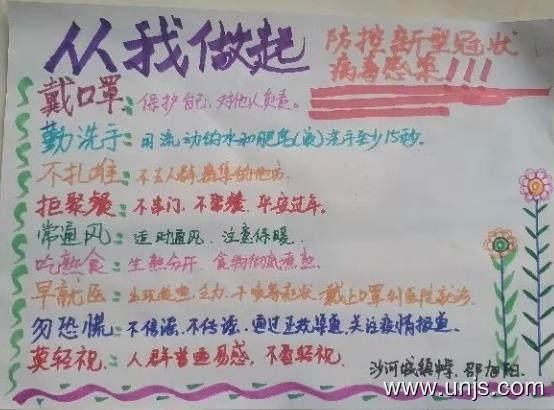 从我做起
防控新型冠状
病毒感染!!!
戴口罩:保护自己,对他人负责。
勤洗手:用流动的水和肥皂(液)洗手至少15秒。
不扎堆:不去人群聚集的地方
拒聚餐:不串门,不聚餐,平安过年。
常通风:适时通风,注意保暖.
吃熟食:生熟分开,食物彻底煮熟.
早就医:出现发热,乏力,干咳等症状,戴上口罩到医院就诊.
勿恐慌:不信谣,不传谣,通过正规渠道,关注疫情报道.
莫轻视:人群普遍易感,不要轻视.
沙河城镇中学 邵旭阳
www.unjs.com